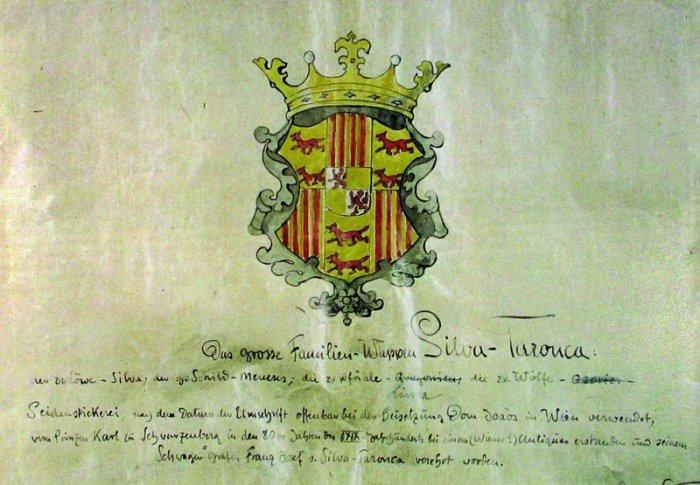 Das grosse Familien-Wappen Silva-Tarouca:
der Löwe - Silva; der Schild - Meneses; die die Wölfe -
Seidenstickerei, nach dem Datum der Umschrift offenbar bei der Beisetzung Dom Joaõs in Wien verwendet,
vom Prinzen Karl zu Schwarzenberg in den 80er Jahren des XIX. Jahrhunderts bei einem (Wiener?) Antiquar erstanden und seinem
Schwager Grafen Franz Josef v. Silva-Tarouca verehrt worden.